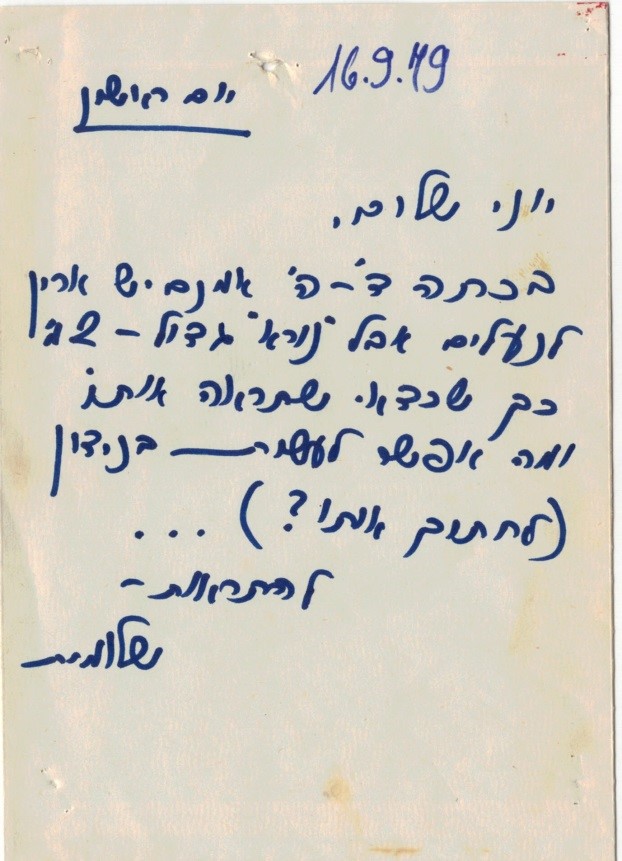 16.9.79
יום ראשון
יוני שלום,
בכתה ד'-ה' אמנם יש ארון
לנעלים אבל "נורא" גדול - 2 מ'
כך שכדאי שתראה אותו
ומה אפשר לעשות — בנידון
(לחתוך אותו?) ...
להתראות -
שלומית